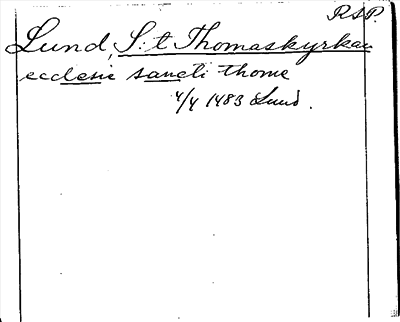 RSP.
Lund, S:t Thomaskyrkan
ecclesie sancti thome
4/4 1483 Lund.